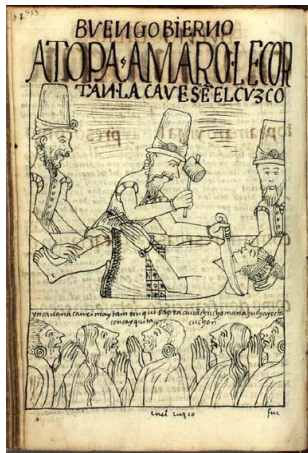 BVENGOBIERNO
ATOPA AMARO·LE COR
TAN·LA CAVESE EELCVZCO
yncauanacauri maytam rinqui sapra aucanchiccho mana huchayocta
concayquita cuchon
enel cuzco